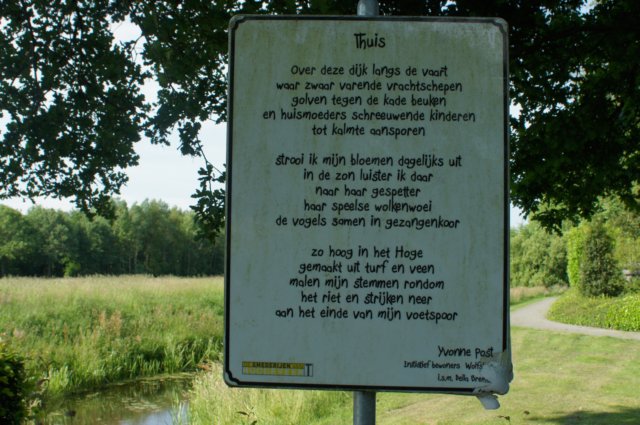 Thuis
Over deze dijk langs de vaart
waar zwaar varende vrachtschepen
golven tegen de kade beuken
en huismoeders schreeuwende kinderen
tot kalmte aansporen
strooi ik mijn bloemen dagelijks uit
in de zon luister ik daar
naar haar gespetter
haar speelse wolkenwoei
de vogels samen in gezangenkoor
zo hoog in het Hoge
gemaakt uit turf en veen
malen mijn stemmen rondom
het riet en strijken neer
aan het einde van mijn voetspoor
Yvonne Post
Initiatief bewoners
i.s.m. Bella
SMEDERIJEN